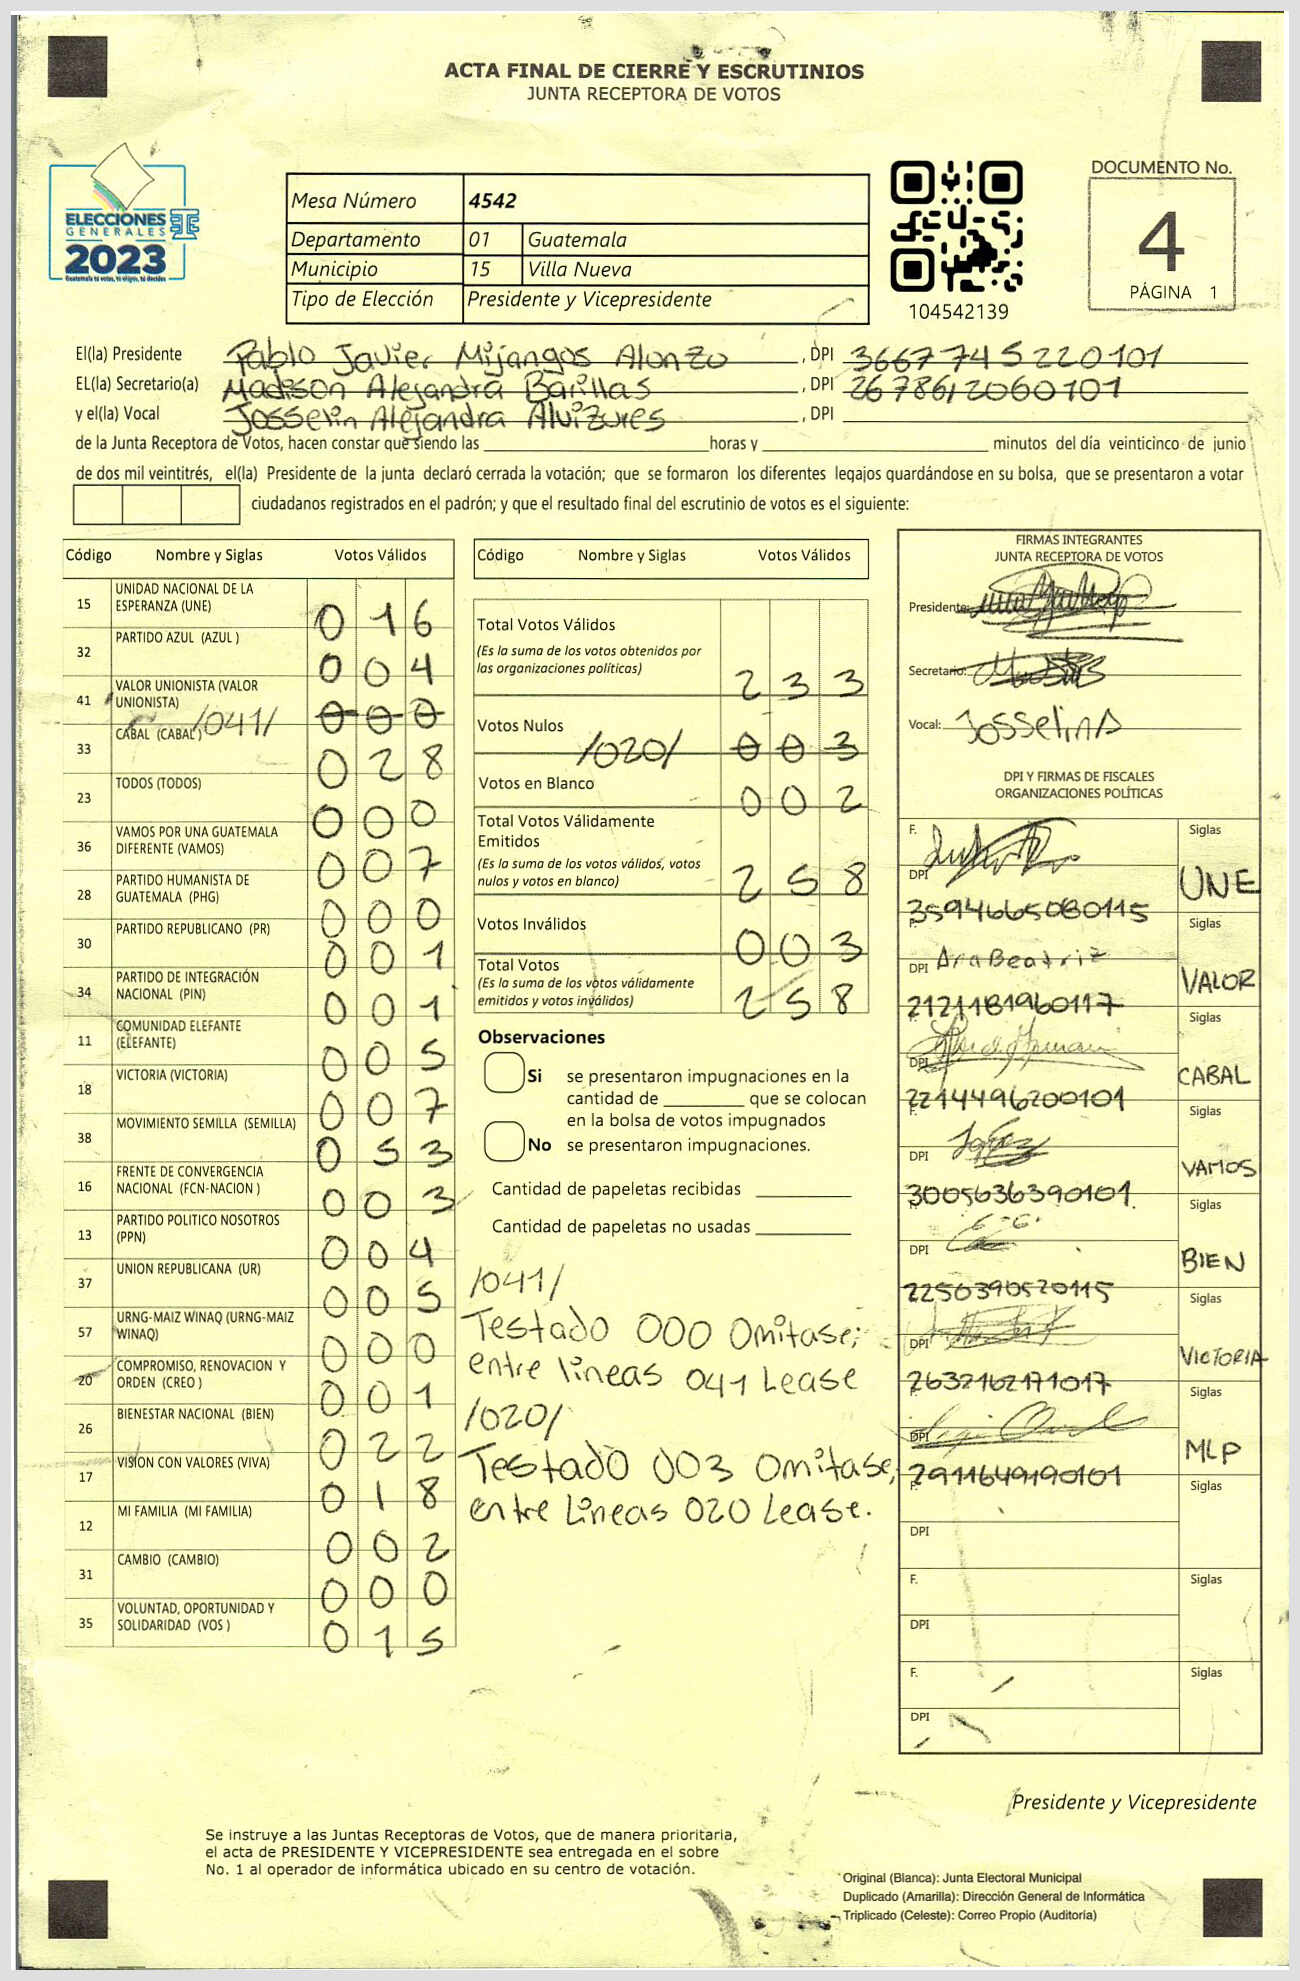 ACTA FINAL DE CIERRE Y ESCRUTINIOS
JUNTA RECEPTORA DE VOTOS
ELECCIONES
GENERALES
2023
Guatemala tú votas, tú eliges, tú decides
Mesa Número 4542
Departamento 01 Guatemala
Municipio 15 Villa Nueva
Tipo de Elección Presidente y Vicepresidente
104542139
DOCUMENTO No.
4
PÁGINA 1
El(la) Presidente Pablo Javier Mijangos Alonzo , DPI 3667745220101
EL(la) Secretario(a) Madison Alejandra Barillas , DPI 2678612060101
y el(la) Vocal Josselin Alejandra Alvizures , DPI
de la Junta Receptora de Votos, hacen constar que siendo las horas y minutos del día veinticinco de junio
de dos mil veintitrés, el(la) Presidente de la junta declaró cerrada la votación; que se formaron los diferentes legajos guardándose en su bolsa, que se presentaron a votar
ciudadanos registrados en el padrón; y que el resultado final del escrutinio de votos es el siguiente:
Código Nombre y Siglas Votos Válidos
15 UNIDAD NACIONAL DE LA ESPERANZA (UNE) 016
32 PARTIDO AZUL (AZUL ) 004
41 VALOR UNIONISTA (VALOR UNIONISTA) /041/ 000
33 CABAL (CABAL ) 028
23 TODOS (TODOS) 000
36 VAMOS POR UNA GUATEMALA DIFERENTE (VAMOS) 007
28 PARTIDO HUMANISTA DE GUATEMALA (PHG) 000
30 PARTIDO REPUBLICANO (PR) 001
34 PARTIDO DE INTEGRACIÓN NACIONAL (PIN) 001
11 COMUNIDAD ELEFANTE (ELEFANTE) 005
18 VICTORIA (VICTORIA) 007
38 MOVIMIENTO SEMILLA (SEMILLA) 053
16 FRENTE DE CONVERGENCIA NACIONAL (FCN-NACION ) 003
13 PARTIDO POLITICO NOSOTROS (PPN) 004
37 UNION REPUBLICANA (UR) 005
57 URNG-MAIZ WINAQ (URNG-MAIZ WINAQ) 000
20 COMPROMISO, RENOVACION Y ORDEN (CREO ) 001
26 BIENESTAR NACIONAL (BIEN) 022
17 VISION CON VALORES (VIVA) 018
12 MI FAMILIA (MI FAMILIA) 002
31 CAMBIO (CAMBIO) 000
35 VOLUNTAD, OPORTUNIDAD Y SOLIDARIDAD (VOS ) 015
Código Nombre y Siglas Votos Válidos
Total Votos Válidos
(Es la suma de los votos obtenidos por
las organizaciones políticas) 233
Votos Nulos /020/ 003
Votos en Blanco 002
Total Votos Válidamente
Emitidos
(Es la suma de los votos válidos, votos
nulos y votos en blanco) 258
Votos Inválidos 003
Total Votos
(Es la suma de los votos válidamente
emitidos y votos inválidos) 258
Observaciones
Si se presentaron impugnaciones en la
cantidad de que se colocan
en la bolsa de votos impugnados
No se presentaron impugnaciones.
Cantidad de papeletas recibidas
Cantidad de papeletas no usadas
/041/
Testado 000 Omitase;
entre lineas 041 Lease
/020/
Testado 003 Omitase,
entre Lineas 020 Lease.
FIRMAS INTEGRANTES
JUNTA RECEPTORA DE VOTOS
Presidente:
Secretario:
Vocal: Josselin A
DPI Y FIRMAS DE FISCALES
ORGANIZACIONES POLÍTICAS
F. Siglas
DPI 3594665080115 UNE
F. Ana Beatriz Siglas
DPI 2121181960117 VALOR
F. Siglas
DPI 2214496200101 CABAL
F. Siglas
DPI 3005636390101 VAMOS
F. Siglas
DPI 2250390520115 BIEN
F. Siglas
DPI 2632162171017 VICTORIA
F. Siglas
DPI 2911649190101 MLP
F. Siglas
DPI
F. Siglas
DPI
F. Siglas
DPI
Presidente y Vicepresidente
Se instruye a las Juntas Receptoras de Votos, que de manera prioritaria,
el acta de PRESIDENTE Y VICEPRESIDENTE sea entregada en el sobre
No. 1 al operador de informática ubicado en su centro de votación.
Original (Blanca): Junta Electoral Municipal
Duplicado (Amarilla): Dirección General de Informática
Triplicado (Celeste): Correo Propio (Auditoría)